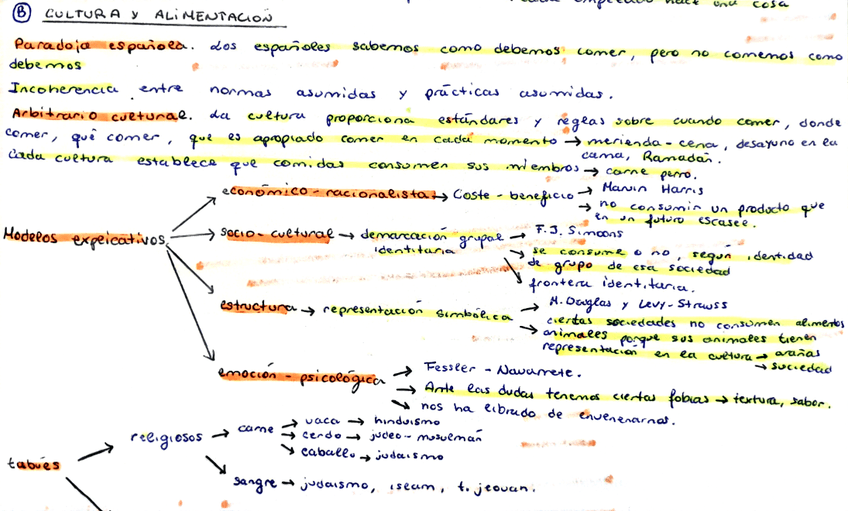 una cosa
B CULTURA Y ALIMENTACIÓN
Paradoja española. Los españoles sabemos como debemos comer, pero no comemos como
debemos
Incoherencia entre normas asumidas y prácticas asumidas.
Arbitrario cultural. La cultura proporciona estándares y reglas sobre cuando comer, donde
comer, qué comer, que es apropiado comer en cada momento → merienda-cena, desayuno en la
cama, Ramadán.
Cada cultura establece que comidas consumen sus miembros → carne perro.
Modelos explicativos
económico-racionalista → Coste-beneficio → Marvin Harris
→ no consumir un producto que
en un futuro escasee.
socio-cultural → demarcación grupal → F.J. Simoons
identitaria → se consume o no, según identidad
de grupo de esa sociedad
→ frontera identitaria.
estructura → representación simbólica → M. Douglas y Levy-Strauss
→ ciertas sociedades no consumen alimentos
animales porque sus animales tienen
representación en la cultura → arañas
→ sociedad
emoción-psicológica → Fessler-Navarrete.
→ Ante las dudas tenemos ciertas fobias → textura, sabor.
→ nos ha librado de envenenarnos.
tabúes → religiosos → carne → vaca → hinduismo
→ cerdo → judeo-musulmán
→ caballo → judaísmo
→ sangre → judaísmo, islam, t. jeovan.